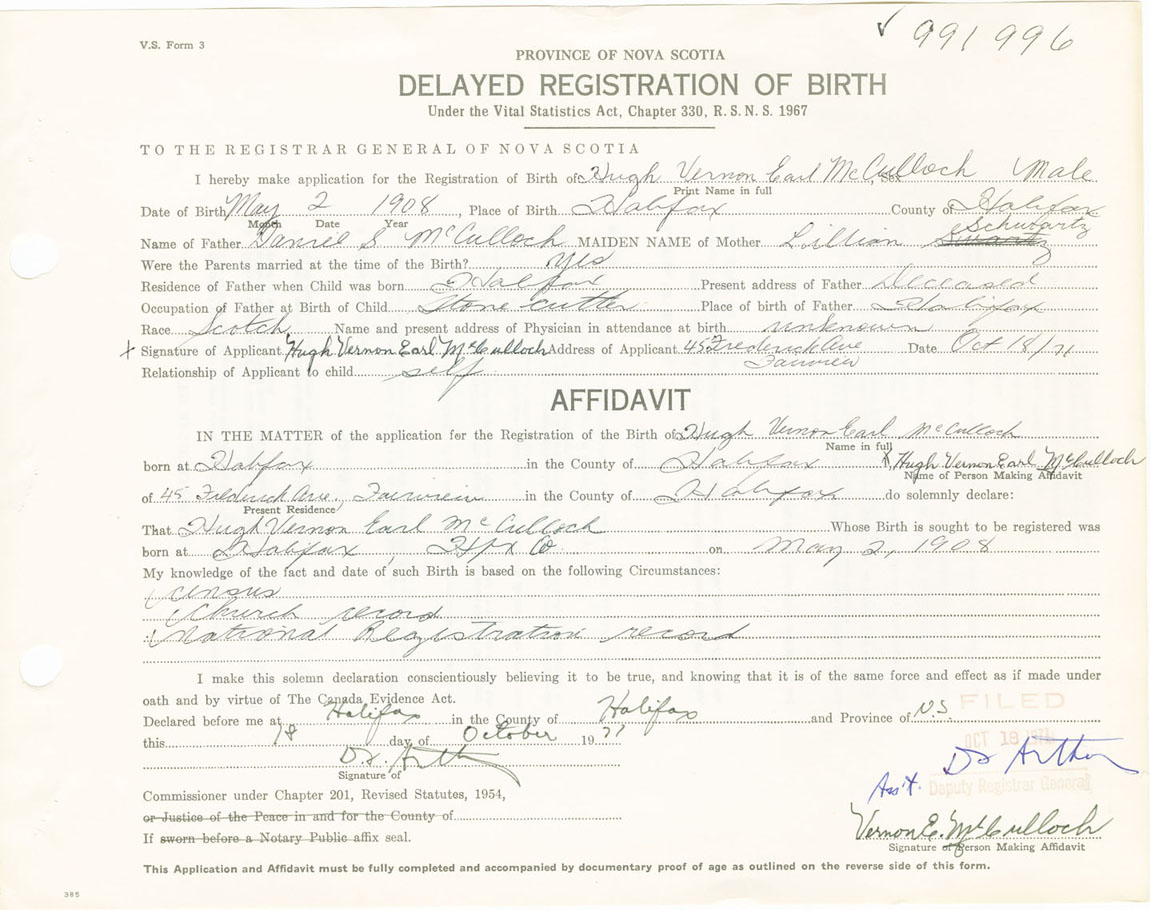 V.S. Form 3
✓ 991996
PROVINCE OF NOVA SCOTIA
DELAYED REGISTRATION OF BIRTH
Under the Vital Statistics Act, Chapter 330, R. S. N. S. 1967
TO THE REGISTRAR GENERAL OF NOVA SCOTIA
I hereby make application for the Registration of Birth of Hugh Vernon Earl McCulloch, Sex Male
Print Name in full
Date of Birth May 2 1908, Place of Birth Halifax County of Halifax
Month Date Year
Schwartz
Name of Father Daniel S McCulloch MAIDEN NAME of Mother Lillian
Were the Parents married at the time of the Birth? Yes
Residence of Father when Child was born Halifax Present address of Father Deceased
Occupation of Father at Birth of Child Stone cutter Place of birth of Father Halifax
Race Scotch Name and present address of Physician in attendance at birth unknown
x Signature of Applicant Hugh Vernon Earl McCulloch Address of Applicant 45 Frederick Ave Date Oct 18/71
Fairview
Relationship of Applicant to child self
AFFIDAVIT
IN THE MATTER of the application for the Registration of the Birth of Hugh Vernon Earl McCulloch
Name in full
born at Halifax in the County of Halifax x Hugh Vernon Earl McCulloch
Name of Person Making Affidavit
of 45 Frederick Ave, Fairview in the County of Halifax do solemnly declare:
Present Residence
That Hugh Vernon Earl McCulloch Whose Birth is sought to be registered was
born at Halifax, Hfx Co. on May 2, 1908
My knowledge of the fact and date of such Birth is based on the following Circumstances:
census
Church record
National Registration record
I make this solemn declaration conscientiously believing it to be true, and knowing that it is of the same force and effect as if made under
oath and by virtue of The Canada Evidence Act.
Declared before me at Halifax in the County of Halifax and Province of N.S.
FILED
this 18 day of October 1971
OCT 18 1971
D. Arthur
D Arthur
Signature of
Ass't. Deputy Registrar General
Commissioner under Chapter 201, Revised Statutes, 1954,
or Justice of the Peace in and for the County of
Vernon E. McCulloch
If sworn before a Notary Public affix seal.
Signature of Person Making Affidavit
This Application and Affidavit must be fully completed and accompanied by documentary proof of age as outlined on the reverse side of this form.
385